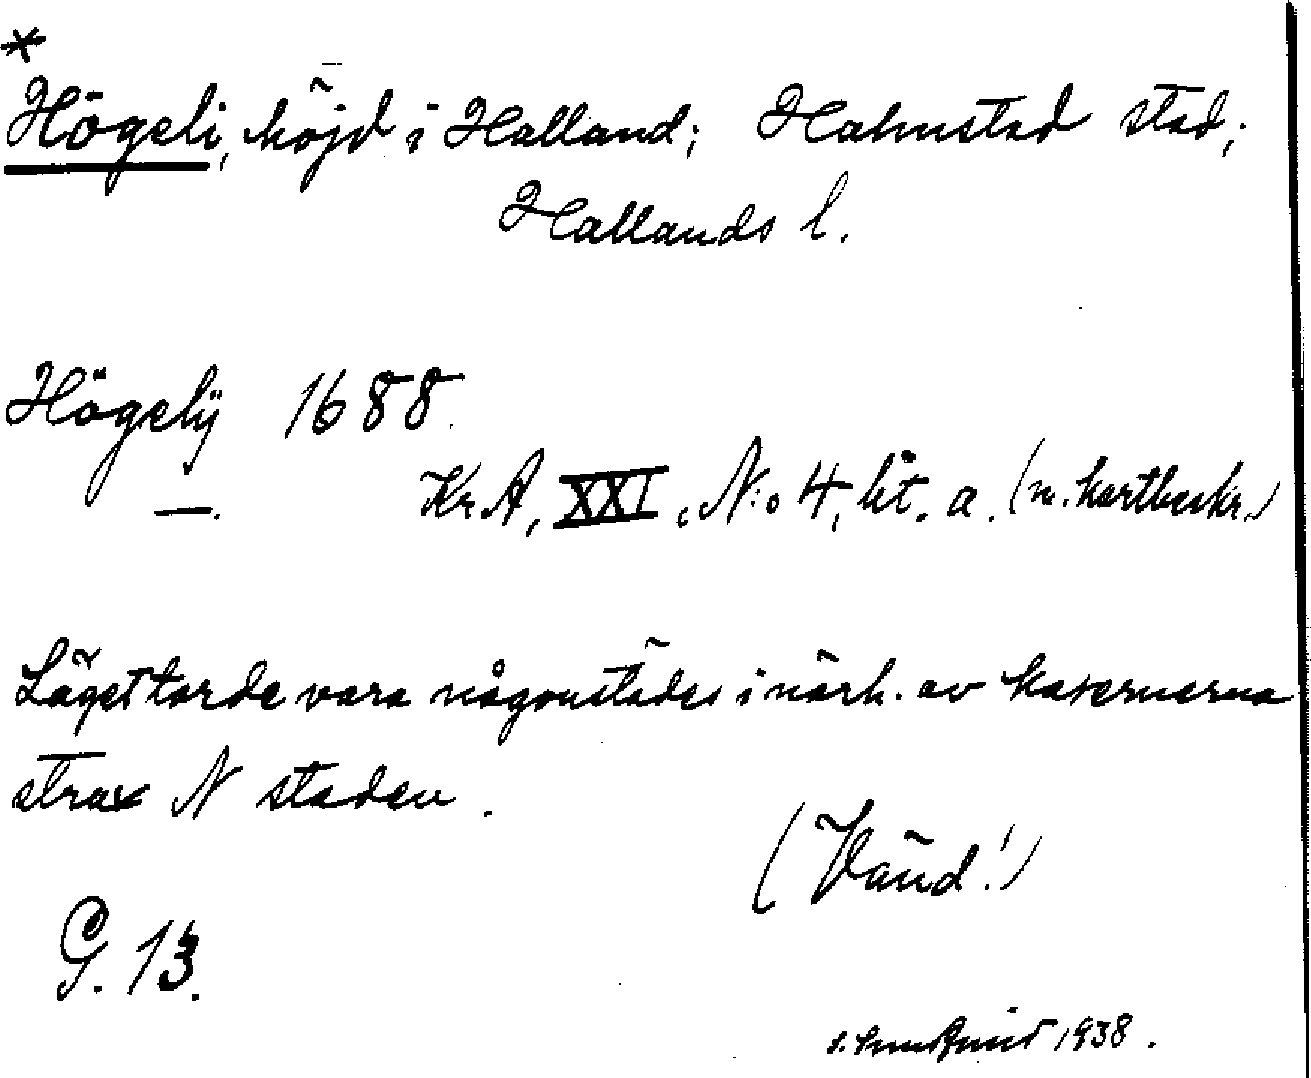 *
Högeli, höjd i Halland; Halmstad stad;
Hallands l.
Högelÿ 1688.
—. Kr.A, XXI, N:o 4, lit. a. (m. kartbeskr.)
Läget torde vara någonstädes i närh. av kasernerna
strax N staden.
(Vänd!)
G. 13.
1938.